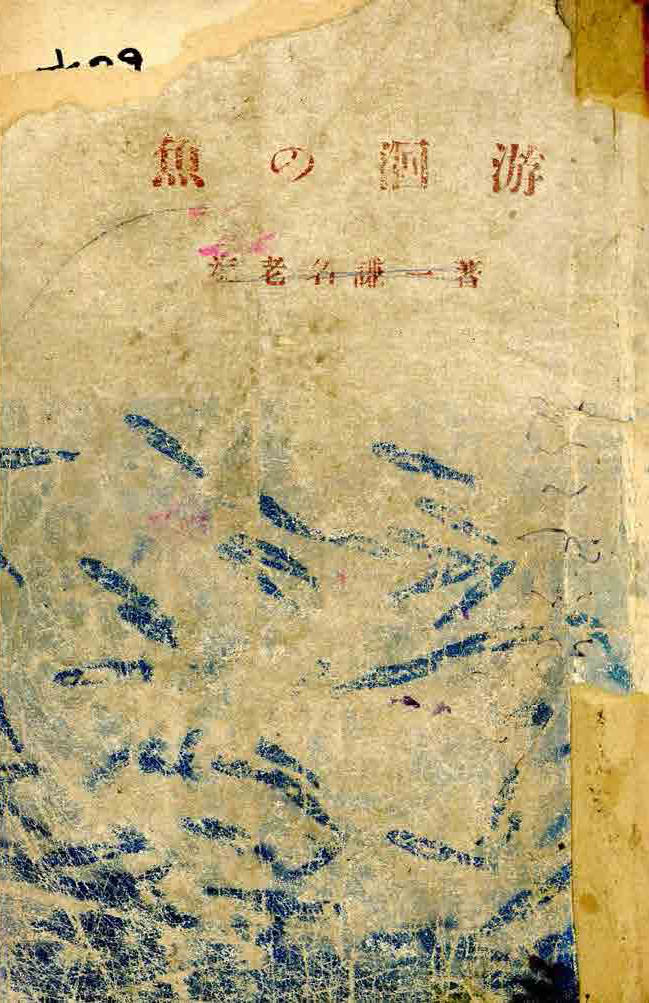 魚の洄游
海老名謙一著